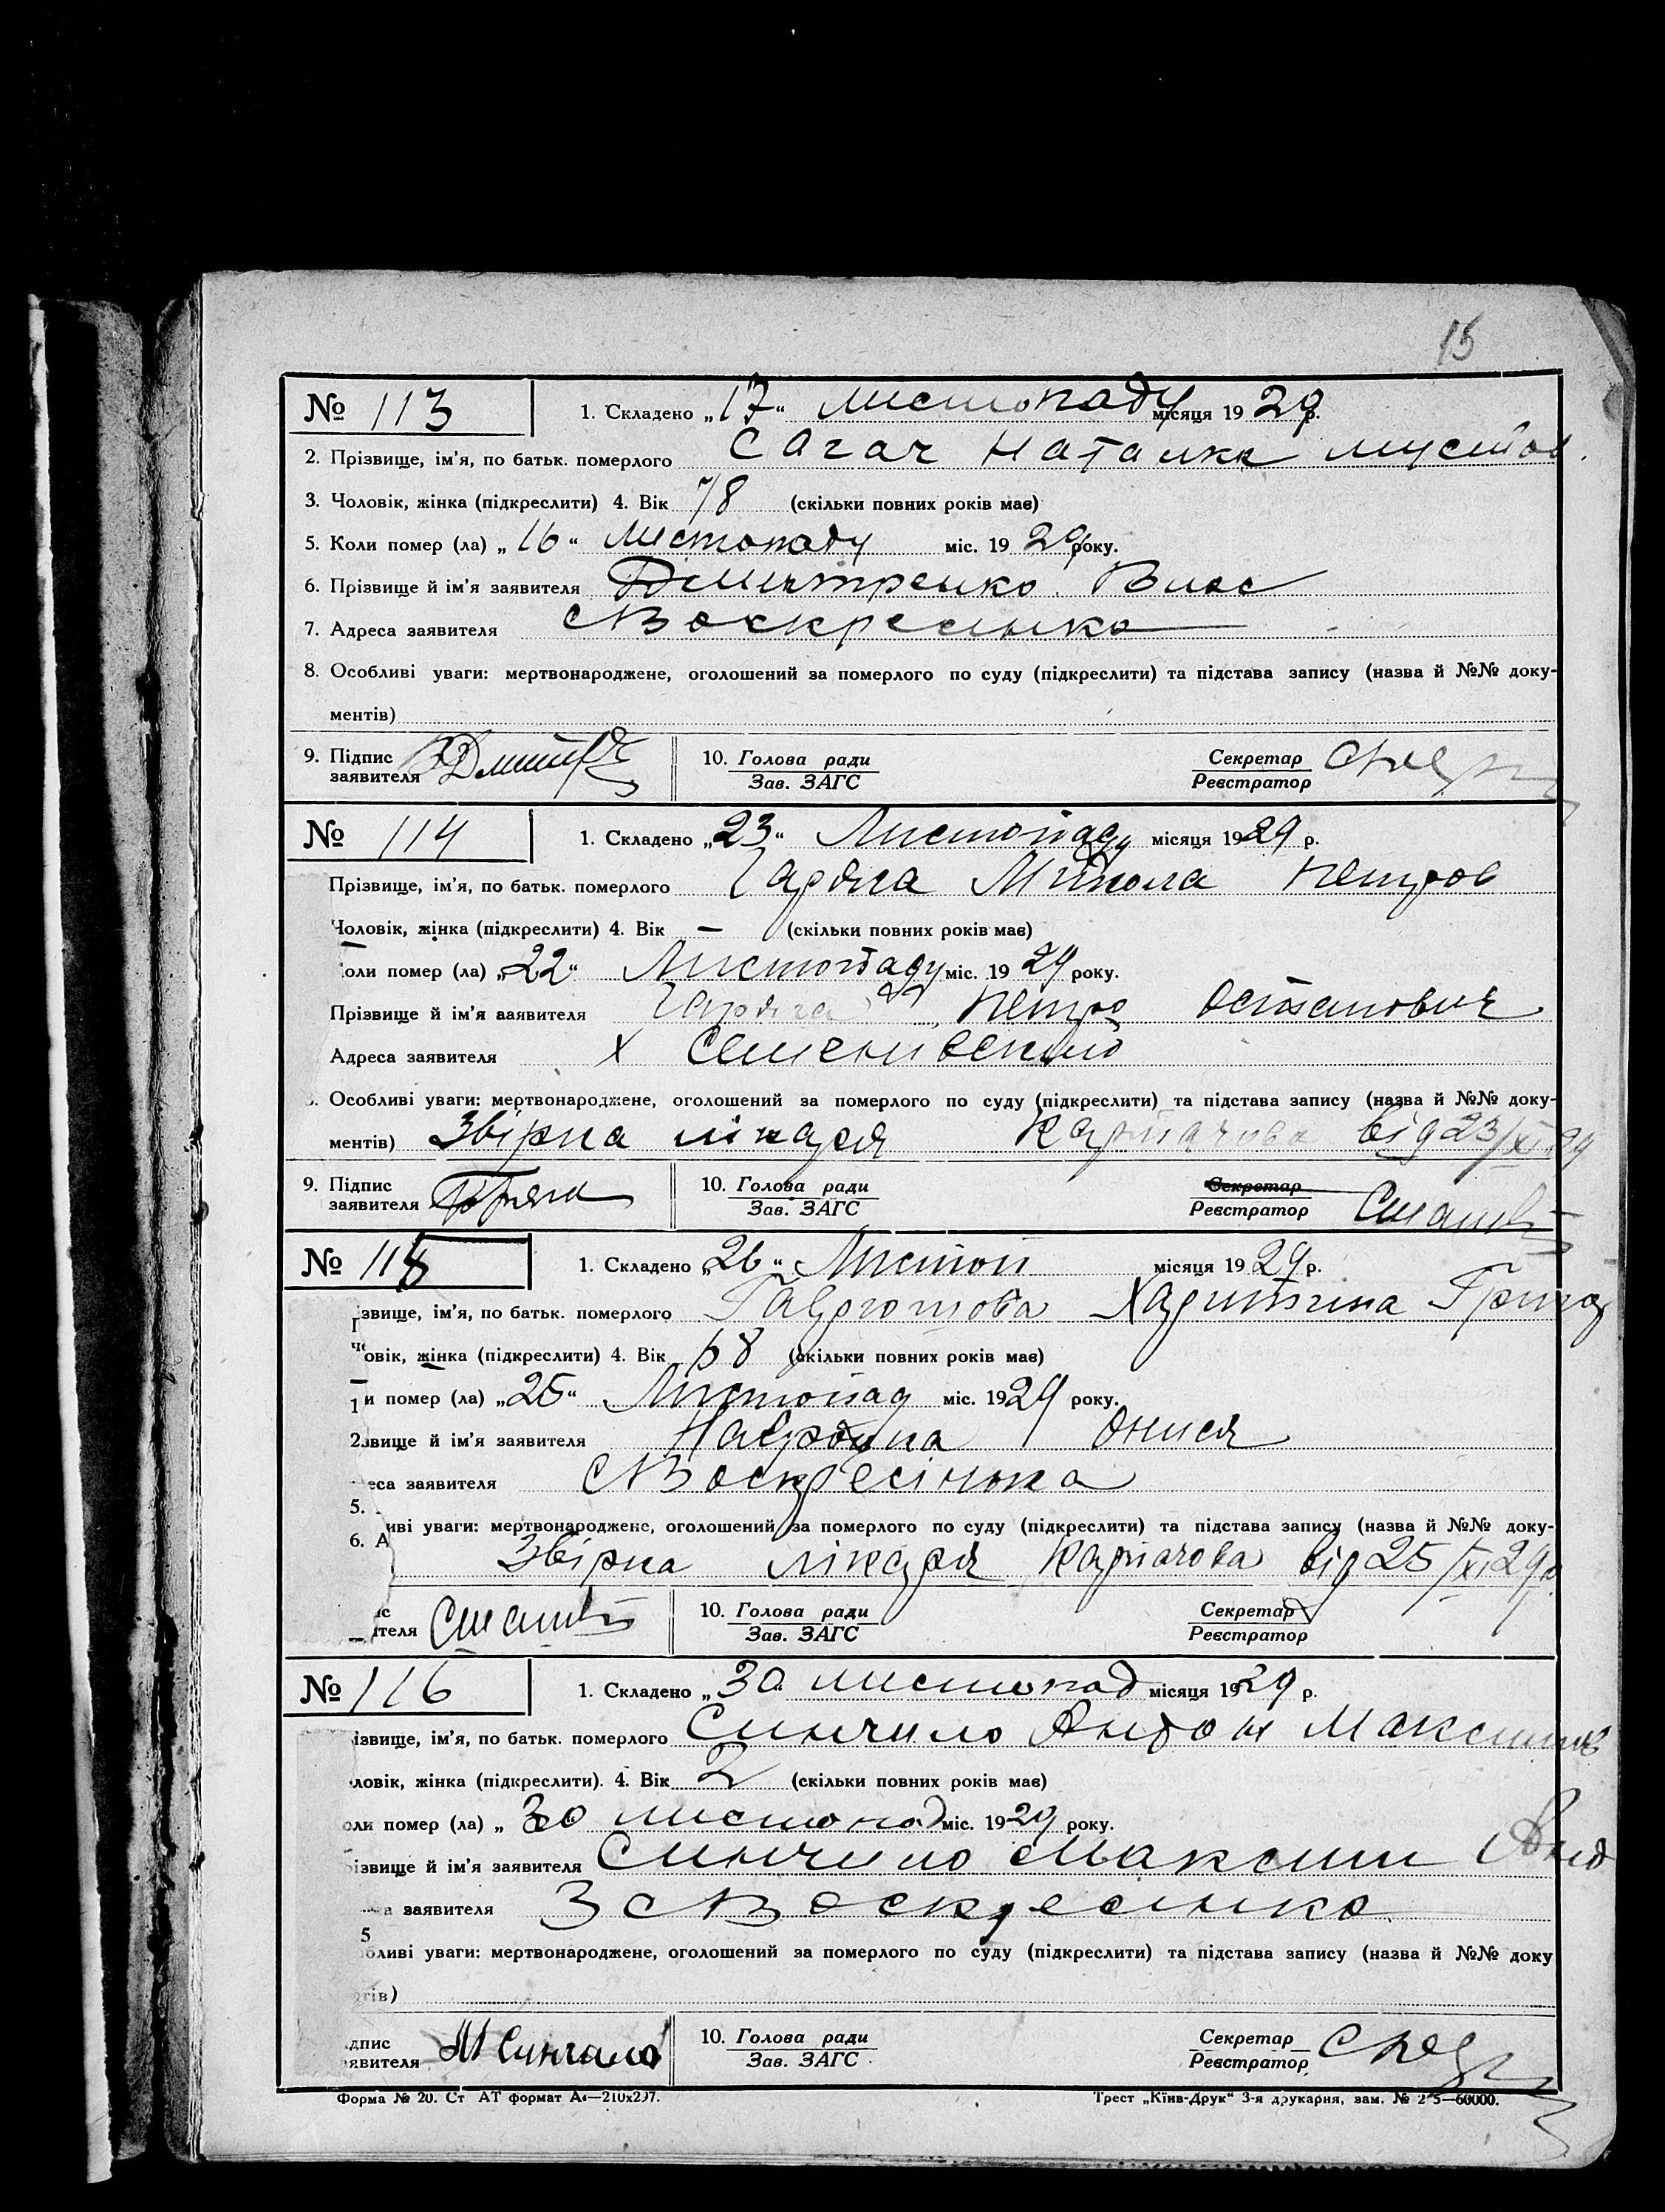 15
№ 113 1. Складено „17“ листопаду місяця 1929 р.
2. Прізвище, ім'я, по батьк. померлого Сагач Наталка
3. Чоловік, жінка (підкреслити) 4. Вік 78 (скільки повних років має)
5. Коли помер (ла) „16“ листопаду міс. 1929 року.
6. Прізвище й ім'я заявителя Дмитренко Влас
7. Адреса заявителя с Воскресенка
8. Особливі уваги: мертвонароджене, оголошений за померлого по суду (підкреслити) та підстава запису (назва й №№ доку-
ментів)
9. Підпис заявителя 10. Голова ради Секретар
Зав. ЗАГС Реєстратор
№ 114 1. Складено „23“ Листопаду місяця 1929 р.
Прізвище, ім'я, по батьк. померлого Микола Петров
Чоловік, жінка (підкреслити) 4. Вік — (скільки повних років має)
оли помер (ла) „22“ Листопаду міс. 1929 року.
Прізвище й ім'я заявителя Петро Остапович
Адреса заявителя х
Особливі уваги: мертвонароджене, оголошений за померлого по суду (підкреслити) та підстава запису (назва й №№ доку-
ментів) Звірка лікаря Карпачова від 23/XI 29
9. Підпис заявителя 10. Голова ради Секретар
Зав. ЗАГС Реєстратор
№ 115 1. Складено „26“ Листоп місяця 1929 р.
звище, ім'я, по батьк. померлого Харитина Григ
овік, жінка (підкреслити) 4. Вік 68 (скільки повних років має)
и помер (ла) „25“ Листопад міс. 1929 року.
звище й ім'я заявителя Онися
еса заявителя с Воскресінка
5.
иві уваги: мертвонароджене, оголошений за померлого по суду (підкреслити) та підстава запису (назва й №№ доку-
6. А
Звірка лікаря Карпачова від 25/XI 29р.
ителя 10. Голова ради Секретар
Зав. ЗАГС Реєстратор
№ 116 1. Складено „30“ листопад місяця 1929 р.
ізвище, ім'я, по батьк. померлого Синчило Антон Максимів
ловік, жінка (підкреслити). 4. Вік 2 (скільки повних років має)
оли помер (ла) „30 листопад міс. 1929 року.
ізвище й ім'я заявителя Синчило Максим
а заявителя З с Воскресенка
5
ливі уваги: мертвонароджене, оголошений за померлого по суду (підкреслити) та підстава запису (назва й №№ доку
тів)
дпис явителя М Синчило 10. Голова ради Секретар
Зав. ЗАГС Реєстратор
Форма № 20. Ст АТ формат А4—210х297. Трест „Київ-Друк“ 3-я друкарня, зам. № 60000.